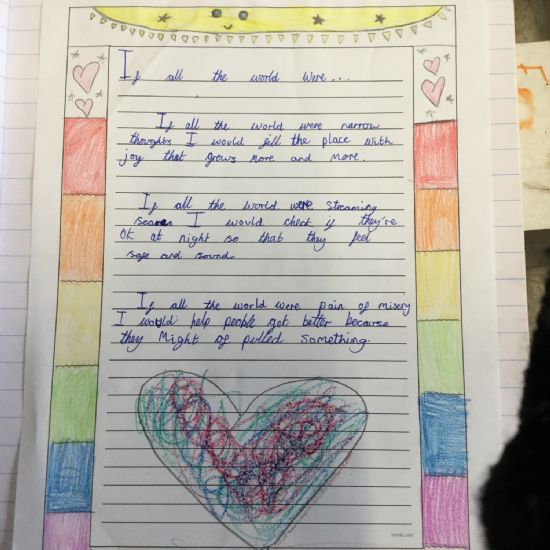 If all the world were...
If all the world were narrow
thoughts I would fill the place with
joy that grows more and more.
If all the world were streaming
scares I would check if they're
ok at night so that they feel
safe and sound.
If all the world were pain of misery
I would help people get better because
they might of pulled something.